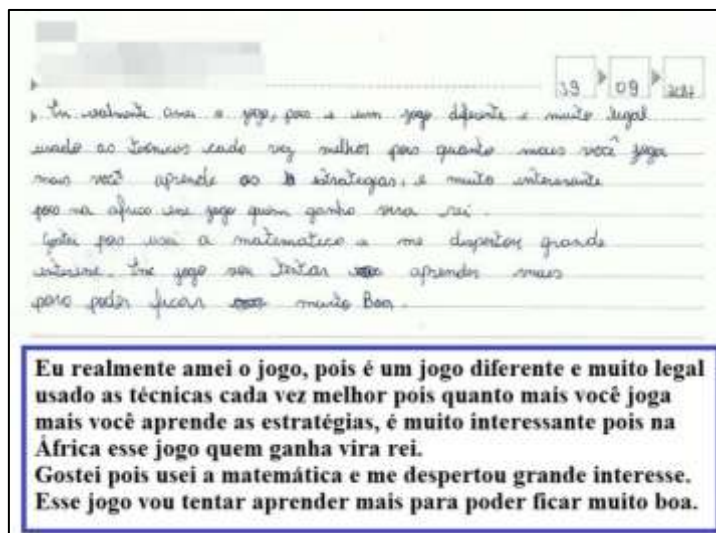 19 09 2017
Eu realmente amei o jogo, pois e um jogo diferente e muito legal
usado as tecnicas cada vez melhor pois quanto mais você joga
mais você aprende as estrategias, e muito interesante
pois na africa esse jogo quem ganha vira rei.
Gostei pois usei a matematica e me despertou grande
interese. Esse jogo vou tentar aprender mais
para poder ficar muito Boa.
Eu realmente amei o jogo, pois é um jogo diferente e muito legal
usado as técnicas cada vez melhor pois quanto mais você joga
mais você aprende as estratégias, é muito interessante pois na
África esse jogo quem ganha vira rei.
Gostei pois usei a matemática e me despertou grande interesse.
Esse jogo vou tentar aprender mais para poder ficar muito boa.